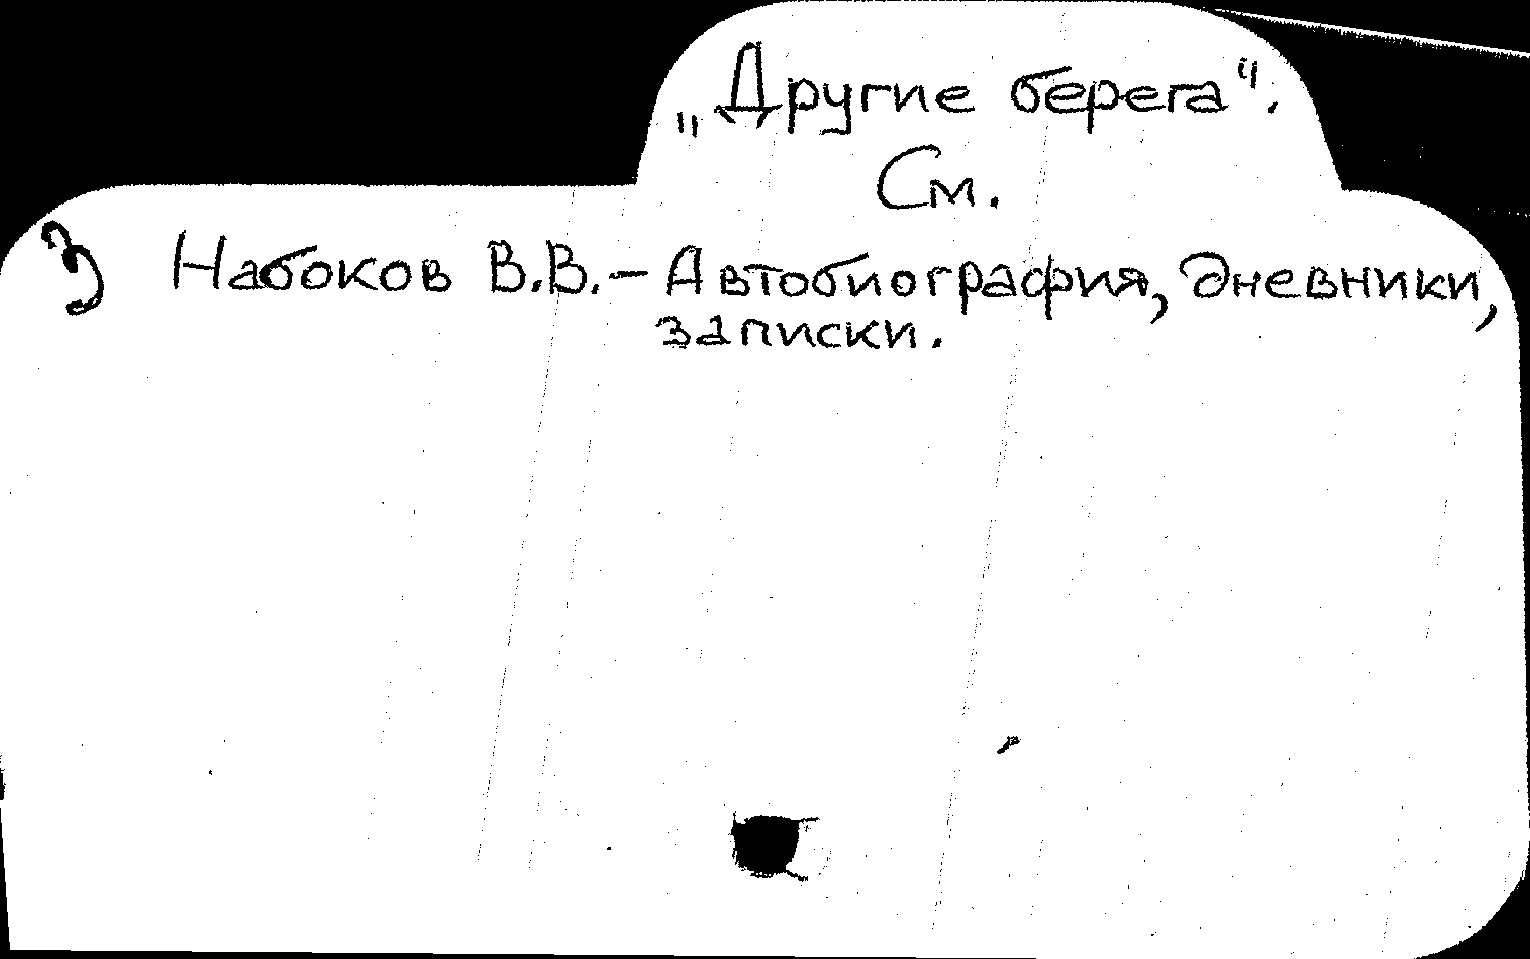 „Другие берега".
См.
З Набоков В.В.– Автобиография, дневники,
записки.